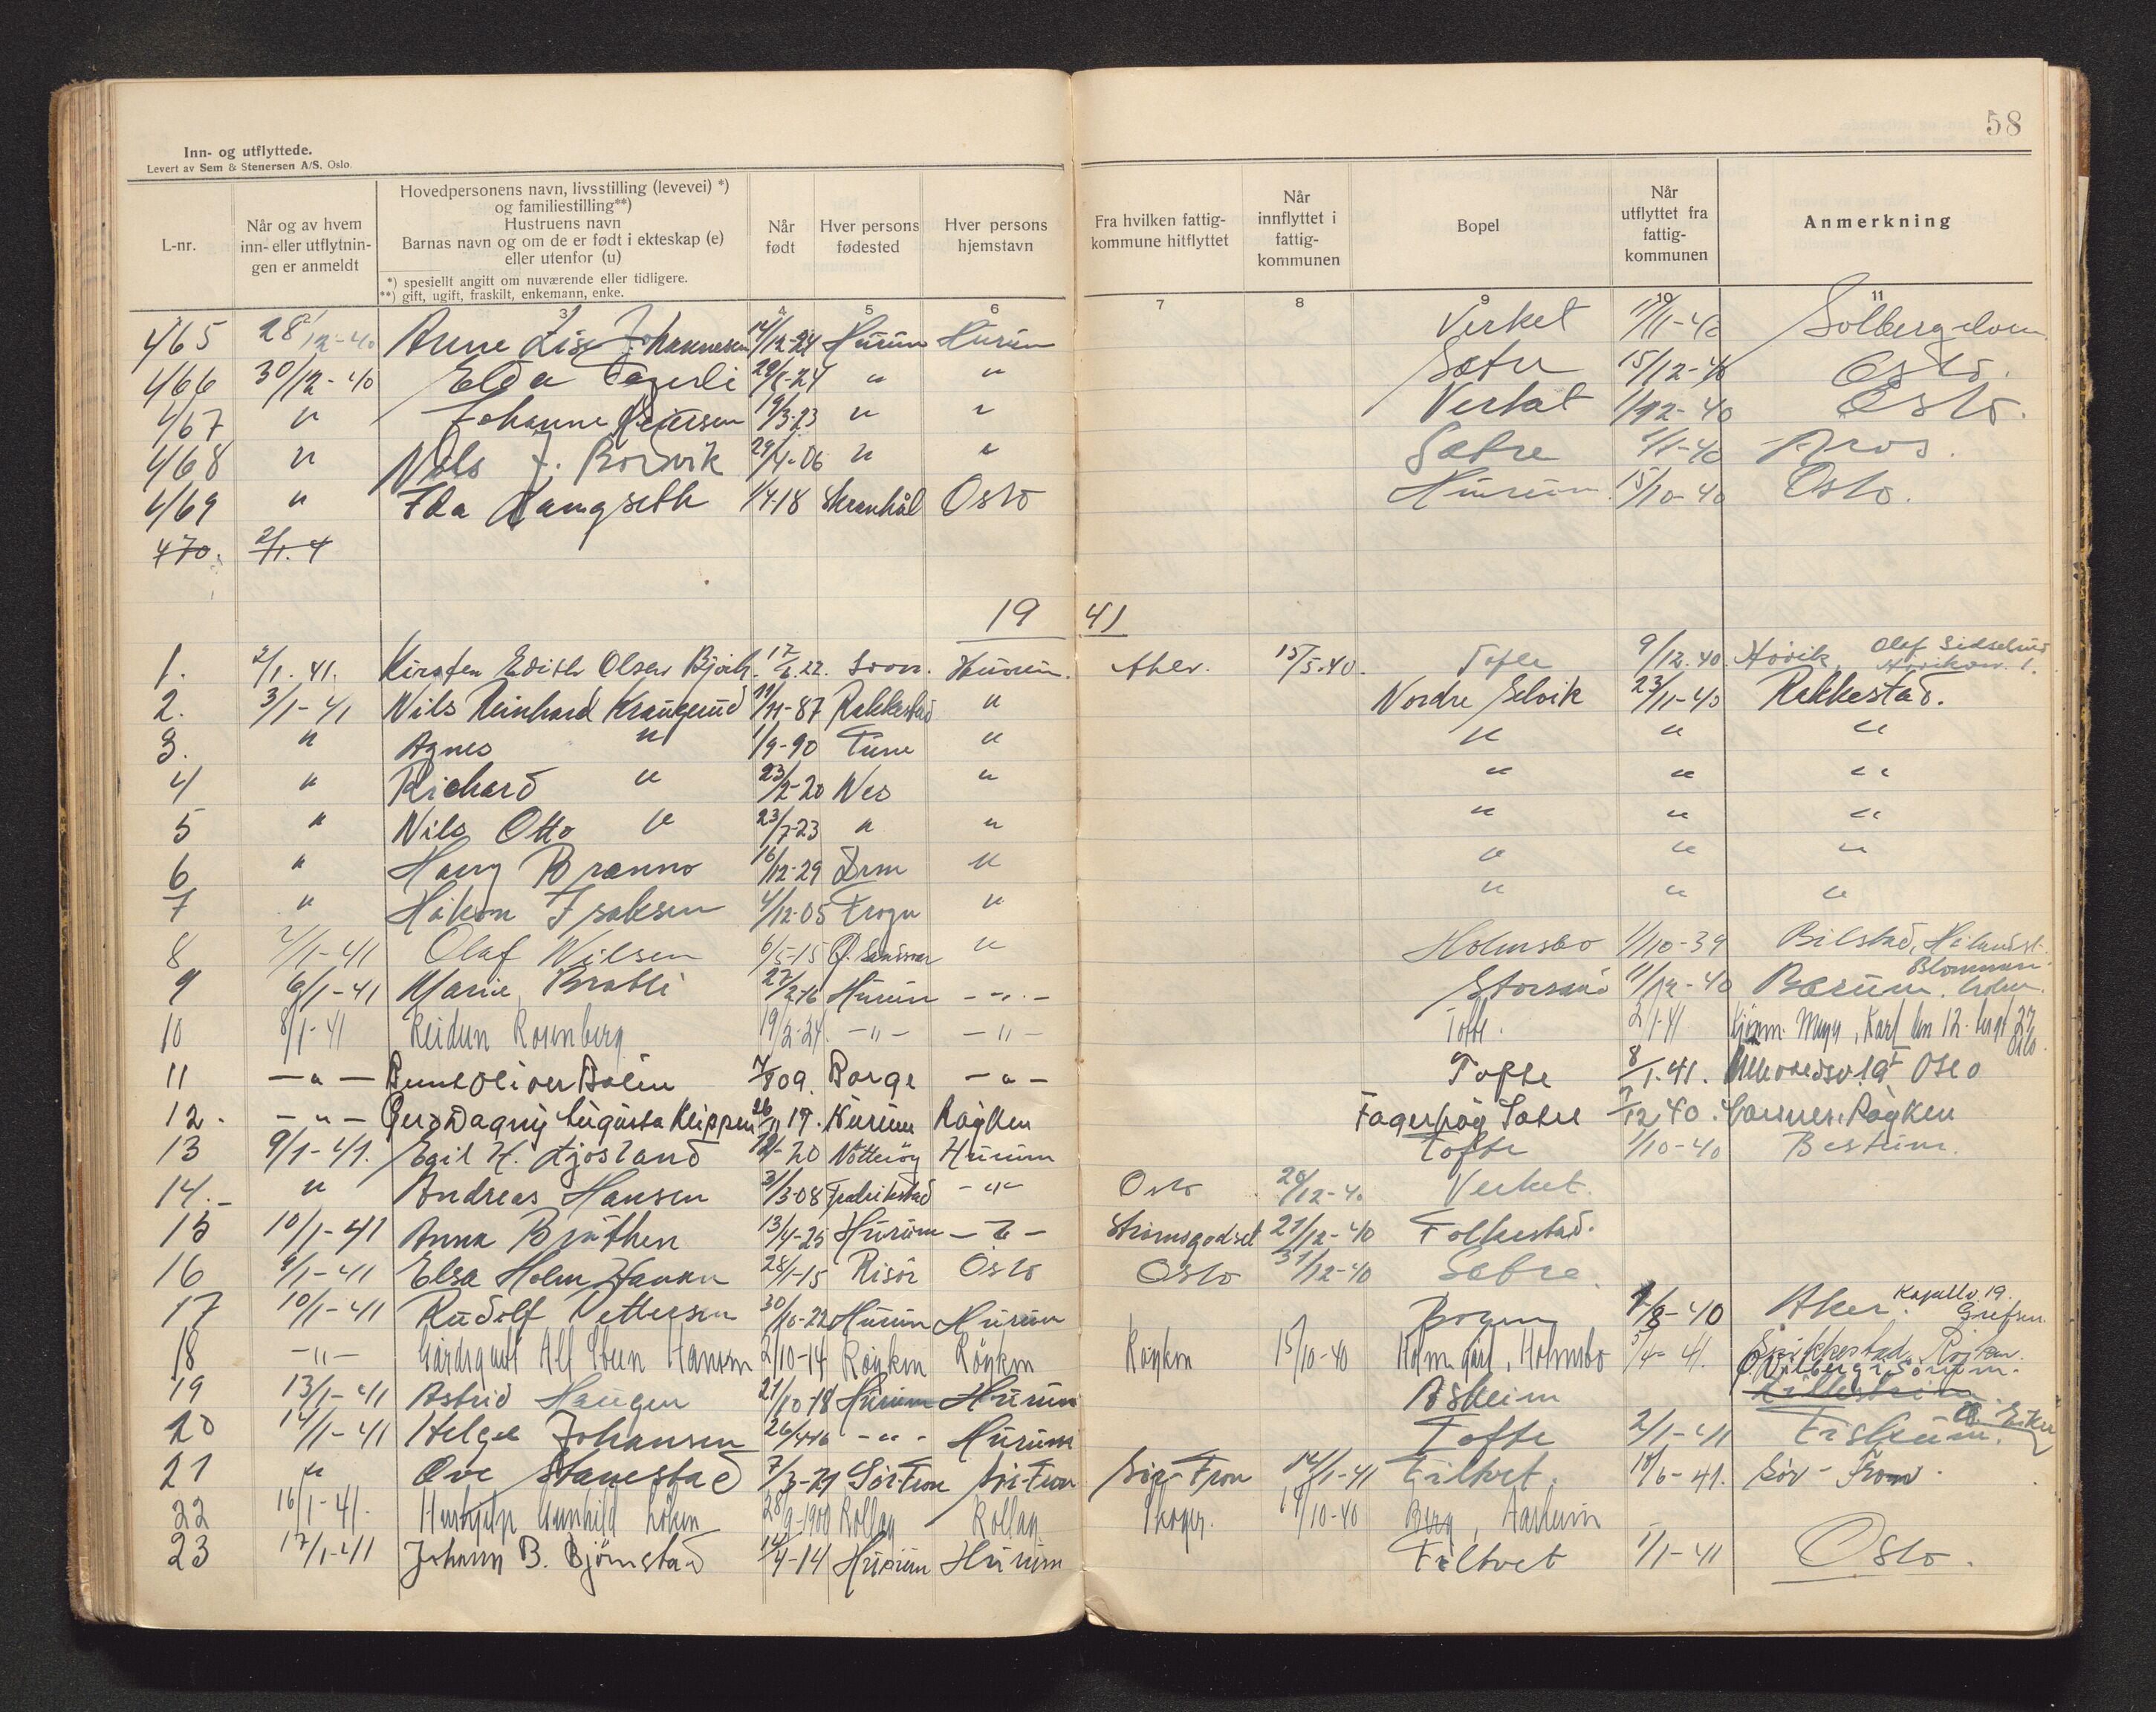 58
Inn- og utflyttede.
Levert av Sem & Stenersen A/S. Oslo.
L-nr.
Når og av hvem inn- eller utflytnin- gen er anmeldt
Hovedpersonens navn, livsstilling (levevei) *) og familiestilling**)
Hustruens navn
Barnas navn og om de er født i ekteskap (e) eller utenfor (u)
*) spesiellt angitt om nuværende eller tidligere.
**) gift, ugift, fraskilt, enkemann, enke.
Når født
Hver persons fødested
Hver persons hjemstavn
Fra hvilken fattig- kommune hitflyttet
Når innflyttet i fattig- kommunen
Bopel
Når utflyttet fra fattig- kommunen
Anmerkning
3 4 5 6 7 8 9 10 11
465 28/12-40 Anne Lise Johannesen 14/12-24 Hurum Hurum Verket 1/11-40
466 30/12-40 Elda Fagerli -24 " " Sætre 15/12-40 Oslo.
467 " Johanne 19/3-23 " " Verket 1/12-40 Oslo.
468 " Nils J. Rørvik 29/4-06 " " Sætre 1/1-40 Aros.
469 " Ida Langseth 1/4-18 Oslo Hurum 15/10-40 Oslo.
470. 2/1. 4
19 41
1. 2/1. 41. Kirsten Edith Olsen 17/6.22. Hurum. Aker. 15/5.40. Tofte 9/12.40 Høvik, Olaf
2. 3/1-41 Nils Reinhard Kraugerud 11/11-87 Rakkestad " Nordre Selvik 23/11-40 Rakkestad.
3. " Agnes " 1/9-90 Tune " " " "
4 " Richard " 23/2-20 Nes " " " "
5 " Nils Otto " 23/7-23 " " " " "
6 " Harry Brænno 16/12-29 Drm " " " "
7 " Håkon Isaksen 4/12-05 Frogn " " " "
8 /1-41 Olaf Nilsen 6/5-15 " Holmsbo 1/10-39 Bilstad,
9 6/1-41 Marie 27/2-16 Hurum -"- Storsand 11/12-40 Bærum. Blommen
10 8/1-41 Reidun Rosenberg 19/2-24. -"- -"- Tofte. 2/1-41
11 -"- 09. Borge -"- Tofte 8/1.41. Oslo
12. -"- Dagny Augusta 26/11 19. Hurum Røyken Sætre 12.40. Røyken
13 9/1-41. Egil H. Ljosland -20 Nøtterøy Hurum Tofte 1/10-40 Bestum.
14.- " Andreas Hansen 31/3-08 Fredrikstad -"- Oslo 20/12-40 Verket.
15 10/1-41 Anna Bråthen 13/4-25 Hurum -"- Strømsgodset 27/12-40 Folkestad.
16 9/1-41 Elsa Holm 28/1-15 Risör Oslo Oslo 31/12-40 Sætre.
17 10/1-41 Rudolf Pettersen 30/10-22 Hurum Hurum 1/8-40 Aker. 19. Grefsen.
18 -"- Gårdsgutt Alf Hansen 2/10-14 Røyken Røyken Røyken 15/10-40 Holm gård, Holmsbo 5/4-41. Spikkestad, Røyken.
19 13/1-41 Astrid Haugen 21/10-18 Hurum Hurum Åsheim
20 14/1-41 Helge Johansen 26/4-16 -"- Hurum Tofte 2/1-41 Fiskum. Eiker
21 " Ove Stanestad 7/3-21 Sör-Fron Sör-Fron Sör-Fron 14/1-41 Filtvet. 18/6-41. Sör-Fron.
22 16/1-41. Hushjelp Gunhild Løken 28/9-1900 Rollag Rollag. Skoger. /10-40 Berg, Aasheim
23 17/1-41 Johann B. Björnstad /4-14 Hurum Hurum Filtvet 1/1-41 Oslo.